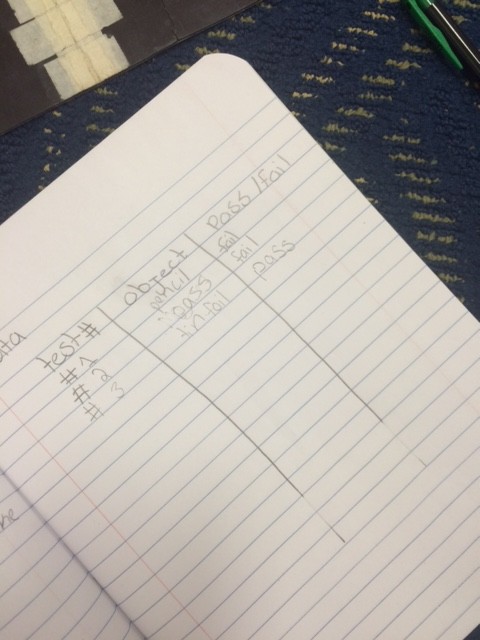 ata
test # object pass/fail
# 1 pencil fail
# 2 pass fail
# 3 tinfoil pass